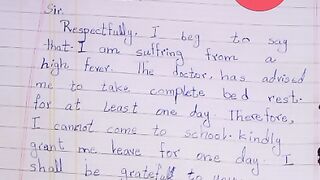 Sir
Respectfully. I beg to say
that I am suffring from a
high fever. The doctor, has advised
me to take complete bed rest.
for at least one day. Therefore,
I cannot come to school. kindly
grant me leave for one day. I
shall be grateful to you